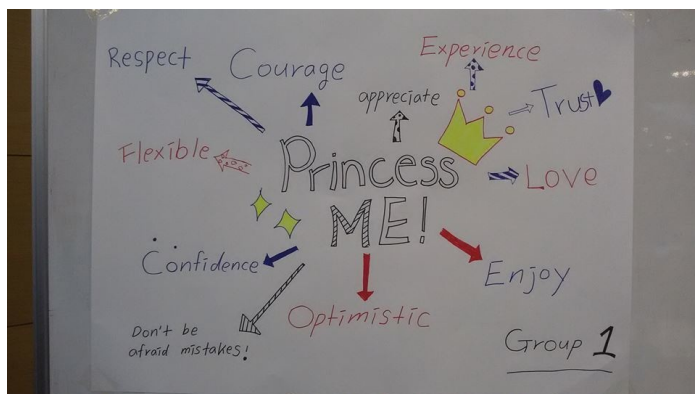 Respect
Courage
Experience
appreciate
Trust
Flexible
Princess
ME!
Love
Confidence
Enjoy
Optimistic
Don't be
afraid mistakes!
Group 1